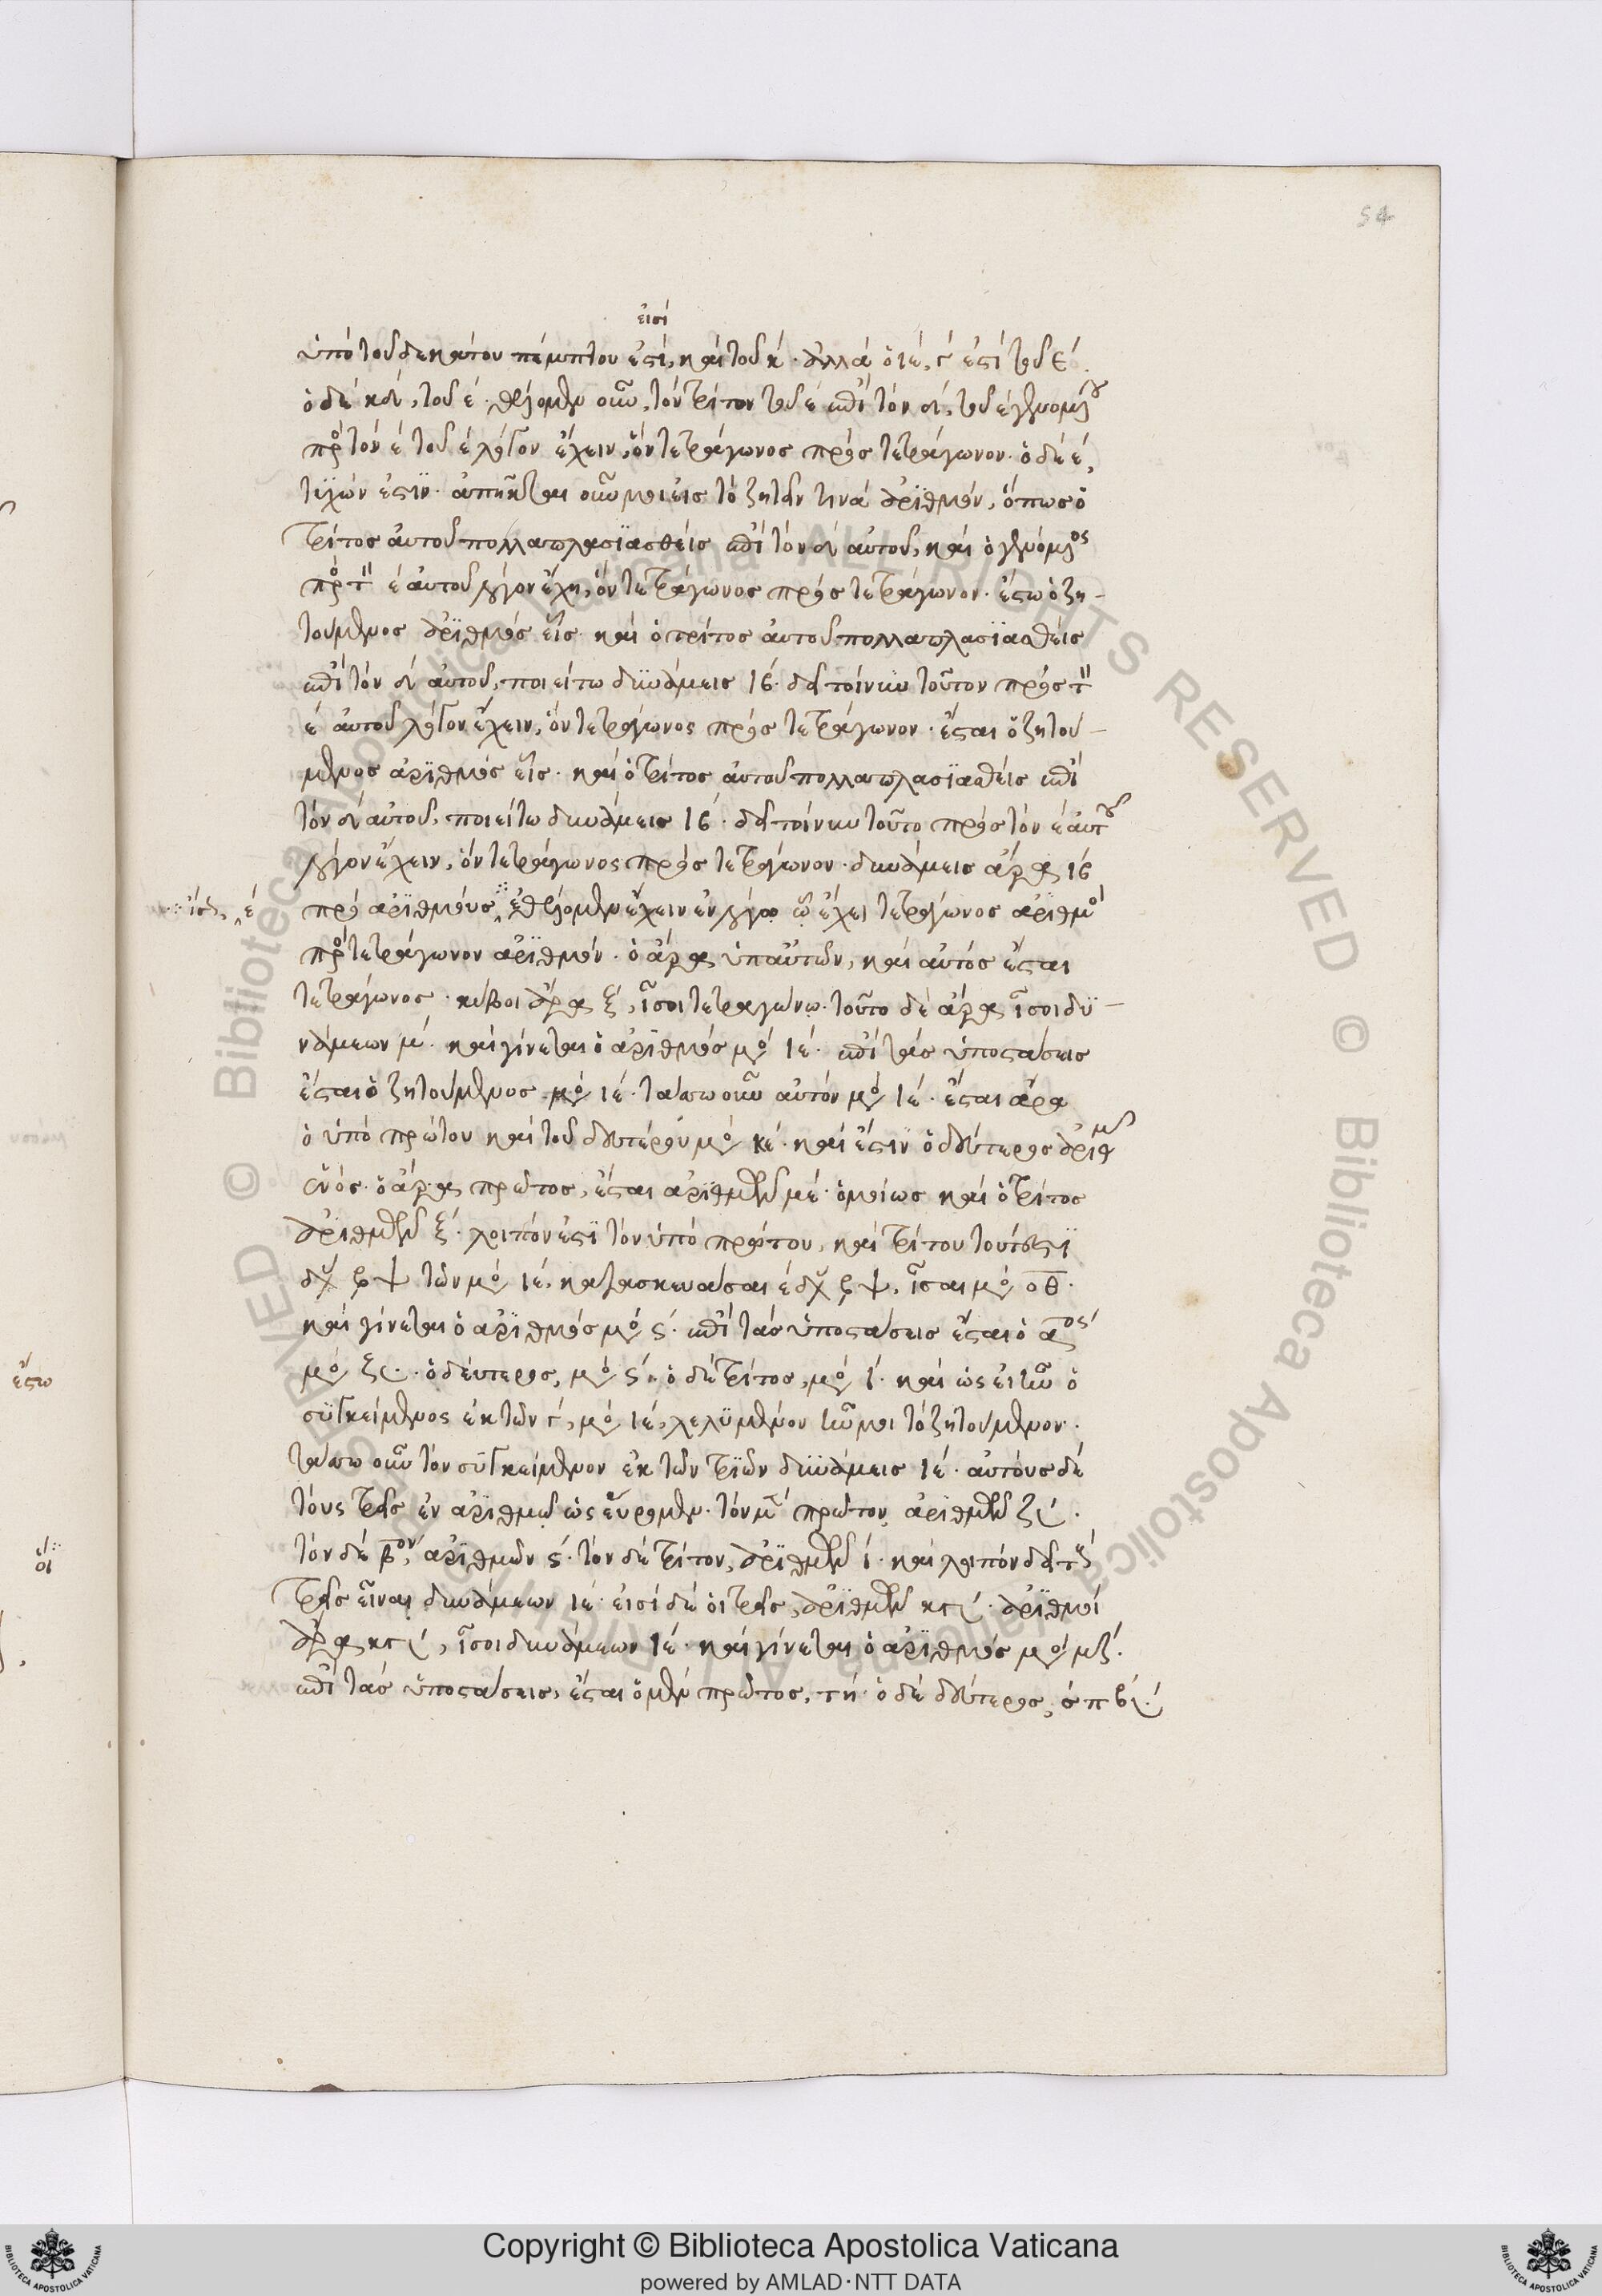 54
εἰσί
ὑπό τοῦ δεκάτου πέμπτου ἐστί, καί τοῦ κ΄. ἀλλά ὁ ιέ, γ΄ ἐστί τοῦ έ.
ὁ δέ κδ΄, τοῦ έ. θέλομεν οὖν, τόν τρίτον τοῦ έ ἐπί τόν δ΄, τοῦ έ γενομένου
πρός τόν έ τοῦ έ λόγον ἔχειν, ὅν τετράγωνος πρός τετράγωνον. ὁ δέ έ,
τυχών ἐστίν. ἀπῆκται οὖν μοι εἰς τό ζητεῖν τινά ἀριθμόν, ὅπως ὁ
τρίτος αὐτοῦ πολλαπλασιασθείς ἐπί τόν δ΄ αὐτοῦ, καί ὁ γενόμενος
πρός τόν έ αὐτοῦ λόγον ἔχη, ὅν τετράγωνος πρός τετράγωνον. ἔστω ὁ ζη-
τούμενος ἀριθμός εἷς. καί ὁ τρίτος αὐτοῦ πολλαπλασιασθείς
ἐπί τόν δ΄ αὐτοῦ, ποιείτω δυνάμεις ιβ΄. δεῖ τοίνυν τοῦτον πρός τόν
έ αὐτοῦ λόγον ἔχειν, ὅν τετράγωνος πρός τετράγωνον. ἔσται ὁ ζητού-
μενος ἀριθμός εἷς. καί ὁ τρίτος αὐτοῦ πολλαπλασιασθείς ἐπί
τόν δ΄ αὐτοῦ, ποιείτω δυνάμεις ιβ΄. δεῖ τοίνυν τοῦτο πρός τόν έ αὐτοῦ
λόγον ἔχειν, ὅν τετράγωνος πρός τετράγωνον. δυνάμεις ἄρα ιβ΄
έ πρός ἀριθμούς θέλομεν ἔχειν ἐν λόγω ὧ ἔχει τετράγωνος ἀριθμός
πρός τετράγωνον ἀριθμόν. ὁ ἄρα ὑπ αὐτῶν, καί αὐτός ἔσται
τετράγωνος. κύβοι ἄρα ξ΄, ἴσοι τετραγώνω. τοῦτο δέ ἄρα ἴσοι δυ-
νάμεων μ΄. καί γίνεται ὁ ἀριθμός μο ιέ. ἐπί τάς ὑποστάσεις
ἔσται ὁ ζητούμενος μο ιέ. τάσσω οὖν αὐτόν μο ιέ. ἔσται ἄρα
ὁ ὑπό πρώτου καί τοῦ δευτέρου μο κέ. καί ἔστιν ὁ δεύτερος ἀριθμοῦ
ἑνός. ὁ ἄρα πρῶτος, ἔσται ἀριθμῶν μέ. ὁμοίως καί ὁ τρίτος
ἀριθμῶν ξ΄. λοιπόν ἐστί τόν ὑπό πρώτου, καί τρίτου τουτέστι
δυ ϛψ τῶν μο ιέ, κατασκευάσαι έ δυ ϛψ, ἴσαι μο οθ.
καί γίνεται ὁ ἀριθμός μο ϛ΄. ἐπί τάς ὑποστάσεις ἔσται ὁ αος
μο ξ. ὁ δεύτερος, μο ϛ΄. ὁ δέ τρίτος, μο ί. καί ὡς εἰ ἦν ὁ
συγκείμενος ἐκ τῶν γ΄, μο ιέ, λελυμένον ἦν μοι τό ζητούμενον.
τάσσω οὖν τόν συγκείμενον ἐκ τῶν τριῶν δυνάμεις ιέ. αὐτούς δέ
τούς τρεῖς ἐν ἀριθμῶ ὡς εὕρομεν. τόν μέν πρῶτον ἀριθμῶν ζ.
τόν δέ βον, ἀριθμῶν ϛ΄. τόν δέ τρίτον, ἀριθμῶν ί. καί λοιπόν δεῖ τούς
τρεῖς εἶναι δυνάμεων ιέ. εἰσί δέ οἱ τρεῖς, ἀριθμῶν κγ. ἀριθμοί
ἄρα κγ, ἴσοι δυνάμεων ιέ. καί γίνεται ὁ ἀριθμός μο μζ΄.
ἐπί τάς ὑποστάσεις, ἔσται ὁ μέν πρῶτος, τή. ὁ δέ δεύτερος, σπβ
ἔστω
οἱ
Copyright © Biblioteca Apostolica Vaticana
powered by AMLAD·NTT DATA